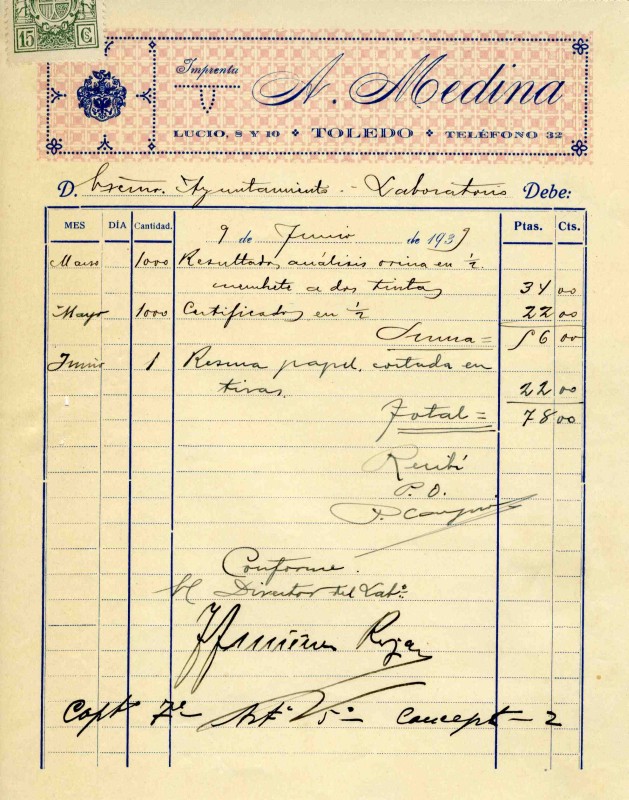 15 Cs
Imprenta
A. Medina
LUCIO, 8 Y 10 TOLEDO TELÉFONO 32
D. Excmo. Ayuntamiento - Laboratorio Debe:
MES DÍA Cantidad. 9 de Junio de 1939 Ptas. Cts.
Marzo 1000 Resultados análisis orina en ½
membrete a dos tintas 34 00
Mayo 1000 Certificados en ½ 22 00
Suma = 56 00
Junio 1 Resma papel, cortada en
tiras. 22 00
Total = 78 00
Recibí
P. O.
Conforme.
El Director del Labº.
Rojas
Capt 7º Artº 5º Concept - 2